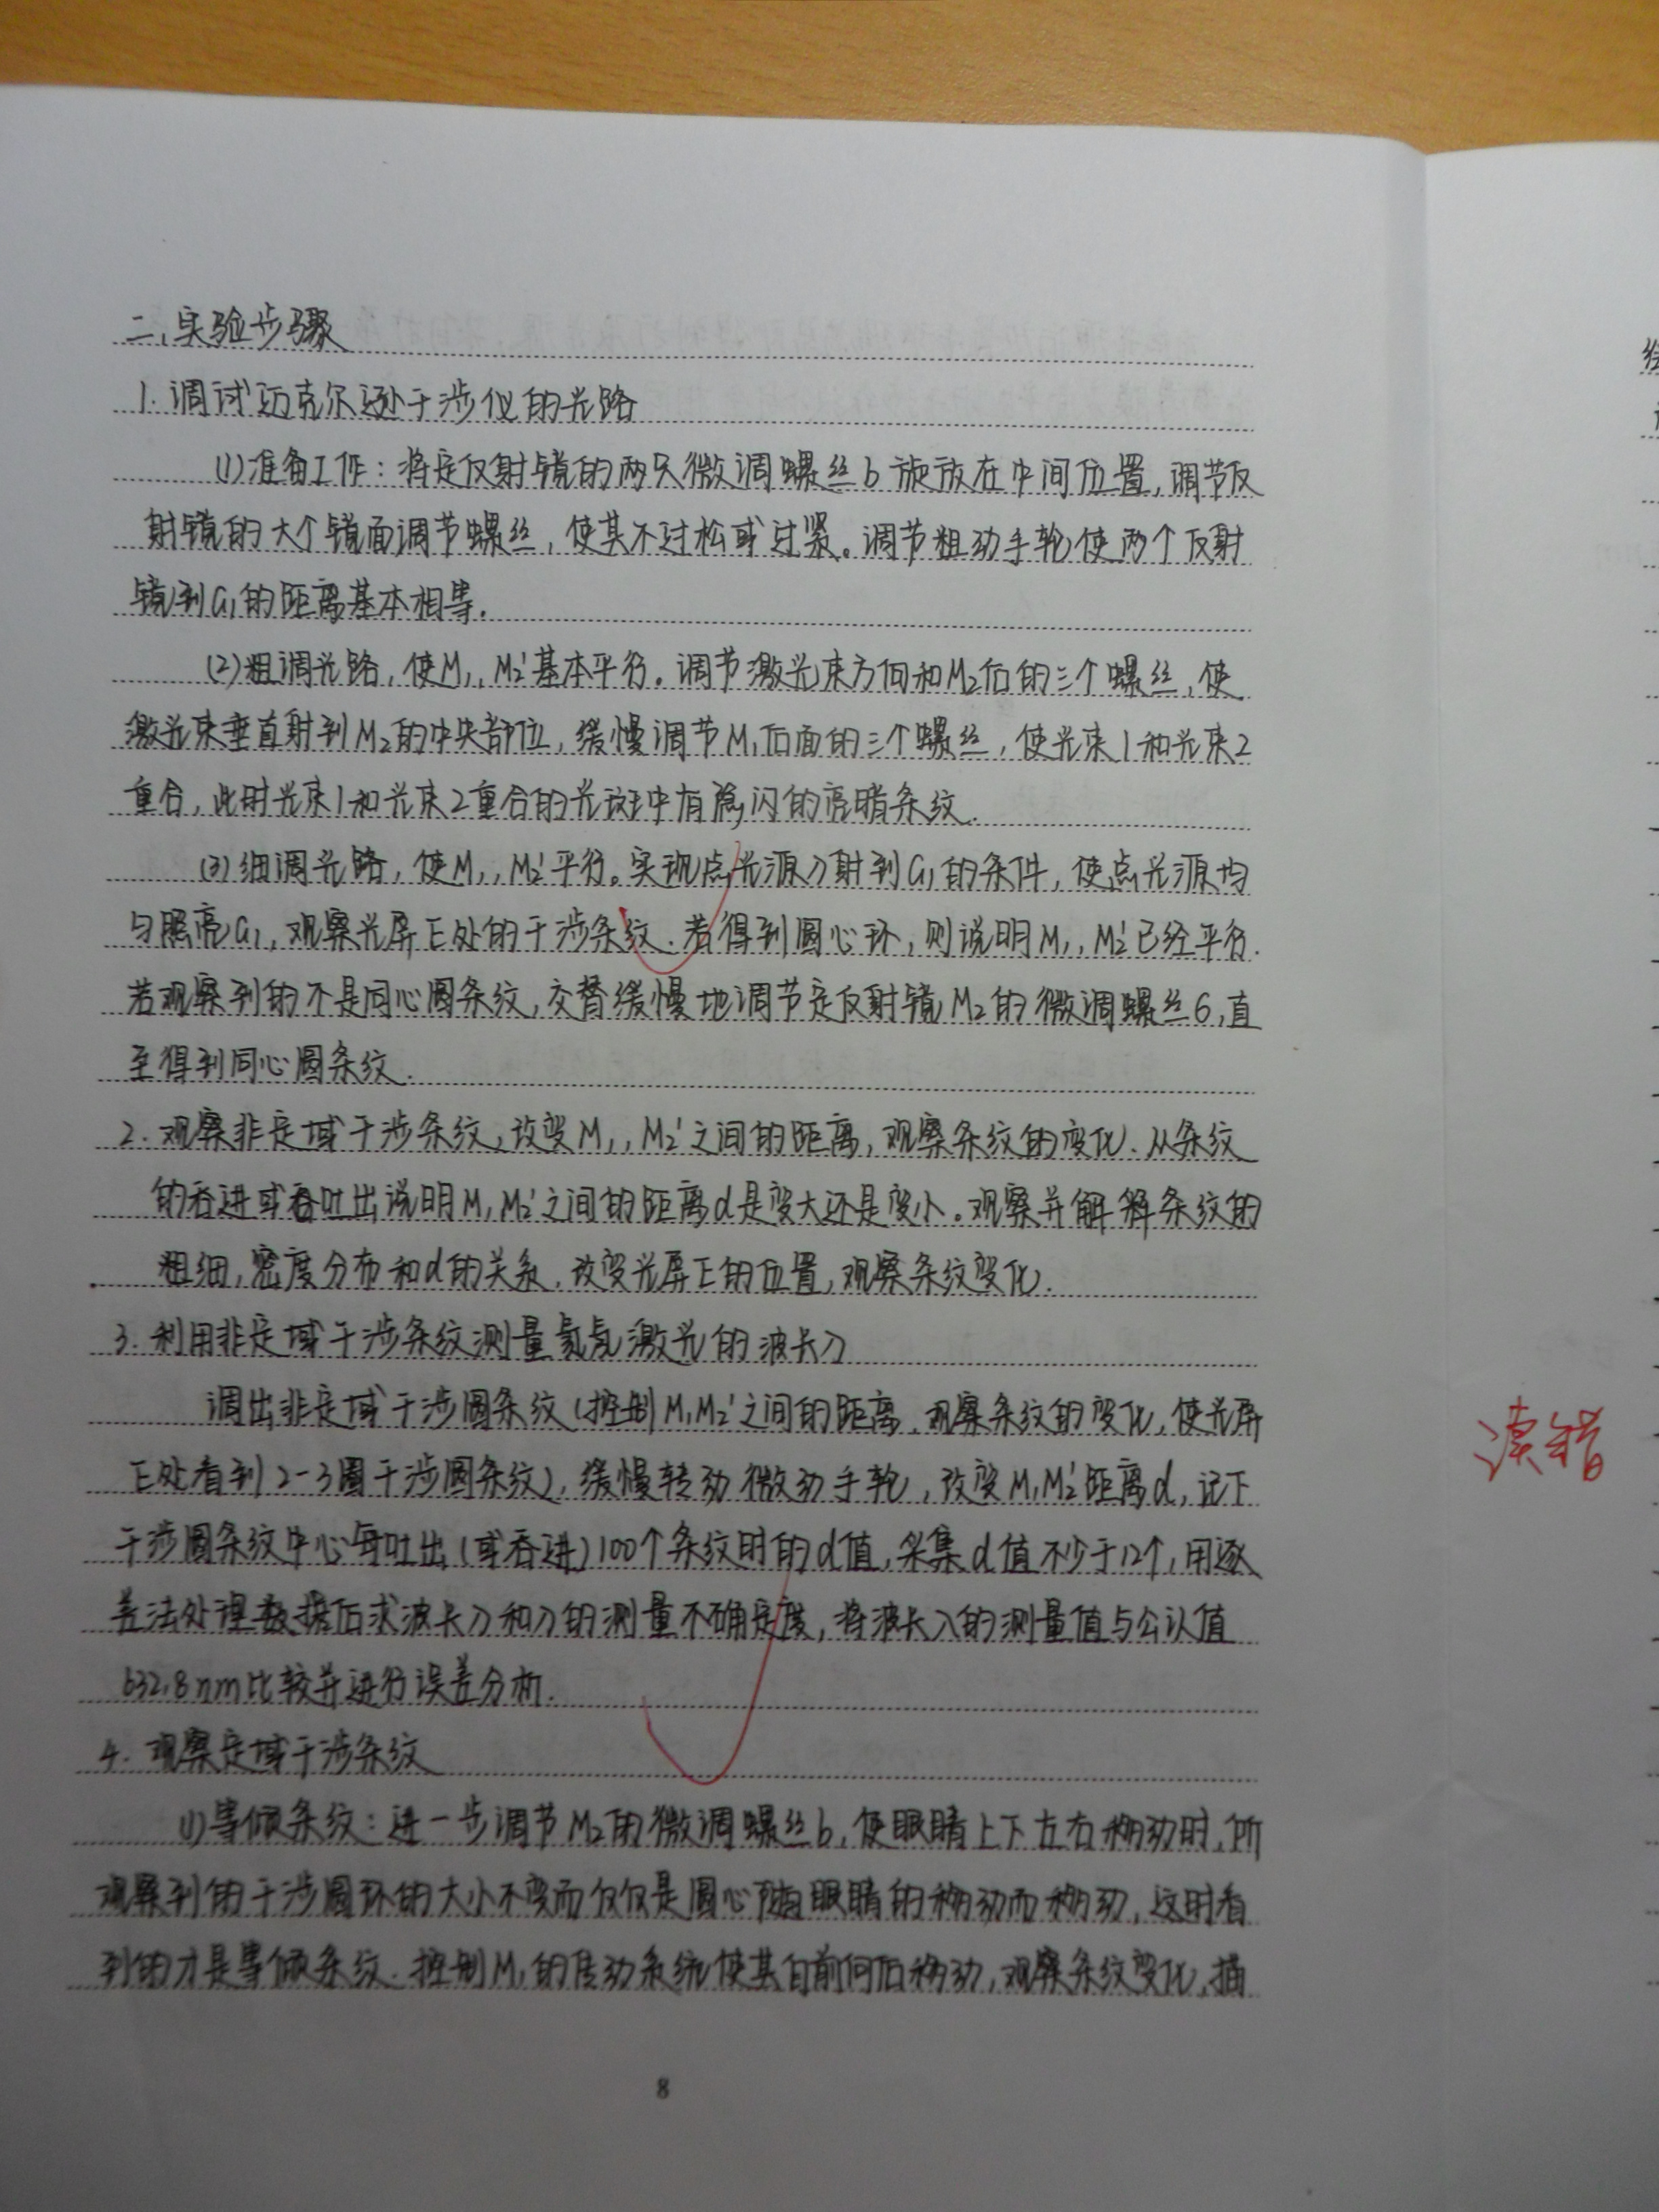 二、实验步骤
1. 调试迈克尔逊干涉仪的光路
(1)准备工作：将定反射镜的两只微调螺丝6旋放在中间位置，调节反
射镜的大个镜面调节螺丝，使其不过松或过紧。调节粗动手轮使两个反射
镜到G₁的距离基本相等.
(2)粗调光路，使M₁, M₂'基本平行。调节激光束方向和M₂后的三个螺丝，使
激光束垂直射到M₂的中央部位，缓慢调节M₁后面的三个螺丝，使光束1和光束2
重合，此时光束1和光束2重合的光斑中有隐闪的亮暗条纹.
(3)细调光路，使M₁, M₂'平行。实现点光源入射到G₁的条件，使点光源均
匀照亮G₁，观察光屏E处的干涉条纹.若得到圆心环，则说明M₁, M₂'已经平行.
若观察到的不是同心圆条纹，交替缓慢地调节定反射镜M₂的微调螺丝6，直
至得到同心圆条纹.
2. 观察非定域干涉条纹，改变M₁, M₂'之间的距离，观察条纹的变化.从条纹
的吞进或吐出说明M₁M₂'之间的距离d是变大还是变小。观察并解释条纹的
粗细，密度分布和d的关系.改变光屏E的位置，观察条纹变化.
3. 利用非定域干涉条纹测量氦氖激光的波长λ
调出非定域干涉圆条纹(控制M₁M₂'之间的距离，观察条纹的变化，使光屏
E处看到2-3圈干涉圆条纹)，缓慢转动微动手轮，改变M₁M₂'距离d，记下
干涉圆条纹中心每吐出(或吞进)100个条纹时的d值，采集d值不少于12个，用逐
差法处理数据后求波长λ和λ的测量不确定度，将波长λ的测量值与公认值
632.8nm比较并进行误差分析.
4. 观察定域干涉条纹
(1)等倾条纹：进一步调节M₂的微调螺丝6，使眼睛上下左右移动时，所
观察到的干涉圆环的大小不变而仅仅是圆心随眼睛的移动而移动，这时看
到的才是等倾条纹.控制M₁的传动系统使其自前向后移动，观察条纹变化，描
8
读错